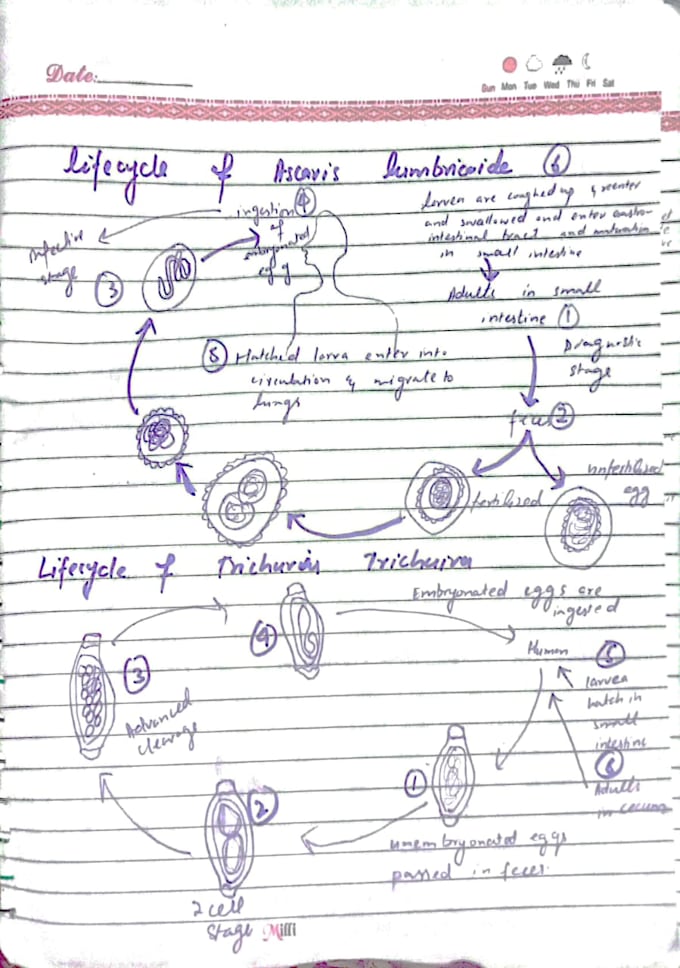 Date:
Sun Mon Tue Wed Thu Fri Sat
Lifecycle of Ascaris lumbricoide 6
Larven are coughed up & reenter
and swallowed and enter gastro
intestinal tract and maturation
in small intestine
Adults in small
intestine 1
Diagnostic
stage
feces 2
fertilized
unfertilized
egg
Infective
stage
3
ingestion 4
of
embryonated
egg
5 Hatched larva enter into
circulation & migrate to
lungs
Lifecycle of Trichuris Trichuira
Embryonated eggs are
ingested
Human 5
larvea
hatch in
small
intestine
6
Adults
in cecum
4
3
Advanced
cleavage
1
2
unembryonated eggs
passed in feces.
2 cell
stage
Milli